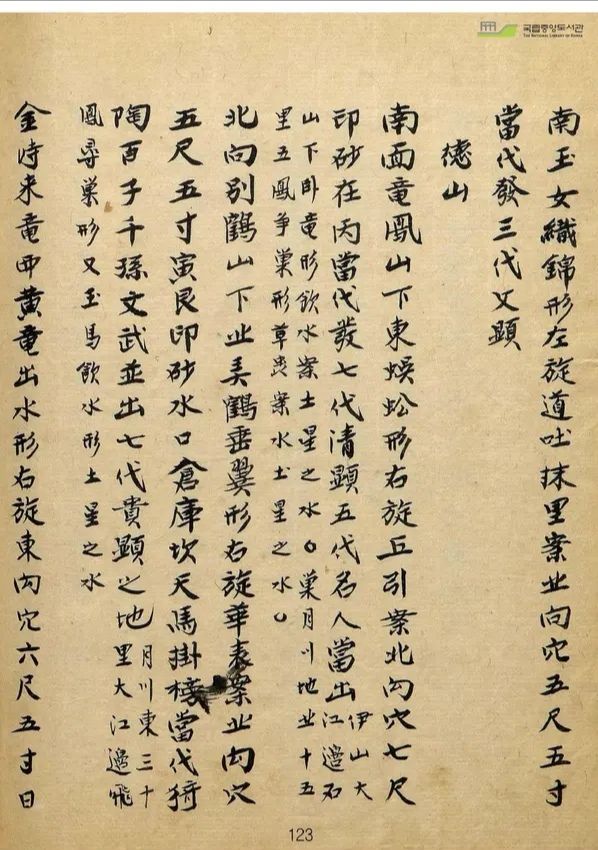 국립중앙도서관
THE NATIONAL LIBRARY OF KOREA
南玉女織錦形左旋道吐抹里案北向穴五尺五寸
當代發三代文顯
德山
南面竜鳳山下東蜈蚣形右旋丘引案北向穴七尺
印砂在丙當代發七代清顯五代名人當出伊山大江邉石
山下卧竜形飲水案土星之水〇巢月川地北十五
里五鳳争巢形草虫案水土星之水〇
北向別鶴山下北美鶴垂翼形右旋華表案北向穴
五尺五寸寅艮印砂水口倉庫坎天馬掛榜當代猗
陶百子千孫文武並出七代貴顯之地月川東三十里大江邉飛
鳳尋巢形又玉馬飲水形土星之水
金時来竜西黄竜出水形右旋東向穴六尺五寸日
123